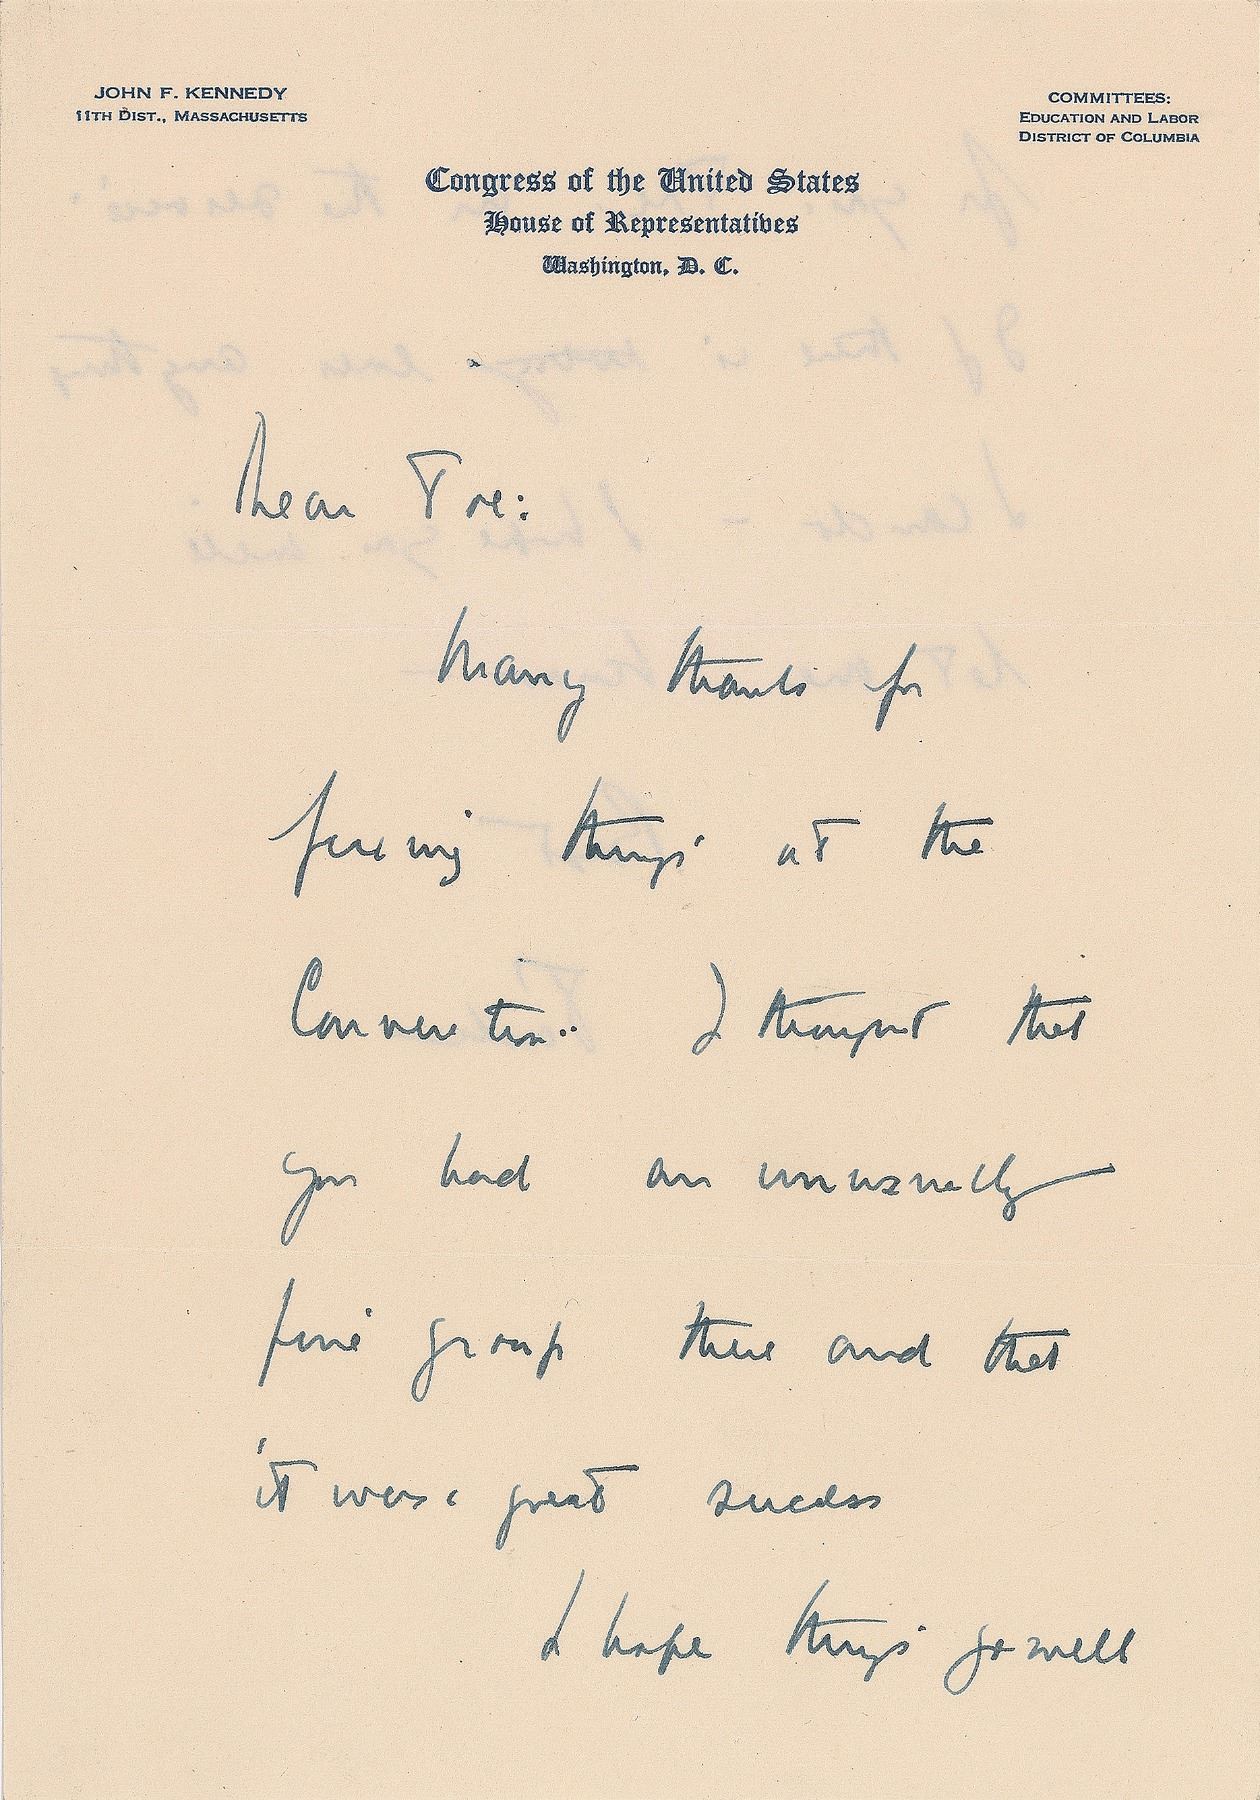 JOHN F. KENNEDY
11TH DIST., MASSACHUSETTS
COMMITTEES:
EDUCATION AND LABOR
DISTRICT OF COLUMBIA
Congress of the United States
House of Representatives
Washington, D. C.
Dear Joe:
Many thanks for
fixing things at the
Convention. I thought that
you had an unusually
fine group there and that
it was a great success
I hope things go well